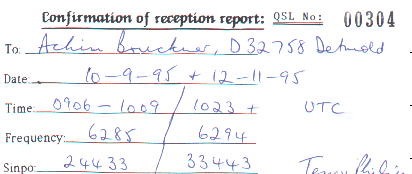 Confirmation of reception report: QSL No: 00304
To: Achim Brueckner, D 32758 Detmold
Date: 10-9-95 + 12-11-95
Time: 0906-1009 / 1023 + UTC
Frequency: 6285 / 6294
Sinpo: 24433 / 33443 Terry